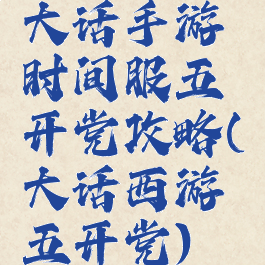 大话手游
时间服五
开党攻略(
大话西游
五开党)